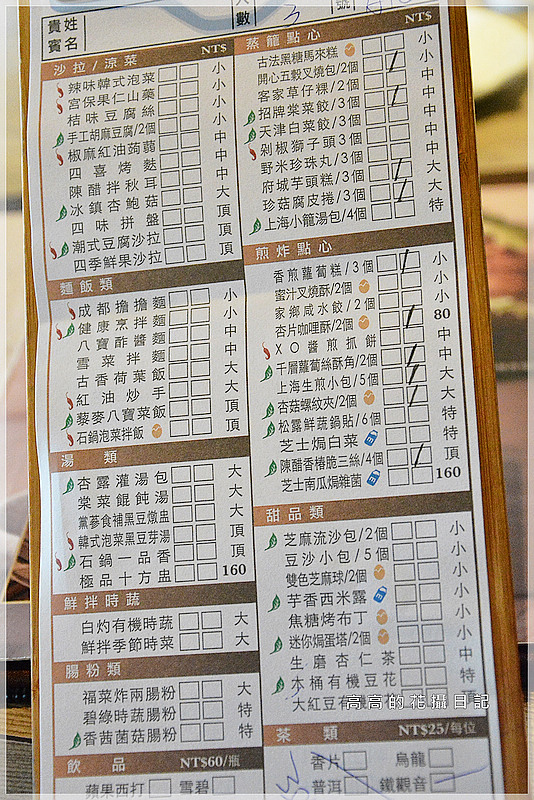 貴姓
賓名
人數
號
沙拉/涼菜 NT$
辣味韓式泡菜 小
宮保果仁山藥 小
桔味豆腐絲 小
手工胡麻豆腐/2個 小
椒麻紅油蒟蒻 中
四喜烤麩 中
陳醋拌秋耳 中
冰鎮杏鮑菇 大
四味拼盤 頂
潮式豆腐沙拉 頂
四季鮮果沙拉 頂
麵飯類
成都擔擔麵 小
健康烹拌麵 小
八寶酢醬麵 中
雪菜拌麵 中
古香荷葉飯 中
紅油炒手 大
藜麥八寶菜飯 頂
石鍋泡菜拌飯 頂
湯類
杏露灌湯包 大
棠菜餛飩湯 大
黨蔘食補黑豆燉盅 大
韓式泡菜黑豆芽湯 頂
石鍋一品香 頂
極品十方盅 160
鮮拌時蔬
白灼有機時蔬 大
鮮拌季節時菜 大
腸粉類
福菜炸兩腸粉 大
碧綠時蔬腸粉 特
香茜菌菇腸粉 特
飲品 NT$60/瓶
蘋果西打 雪碧
蒸籠點心 NT$
古法黑糖馬來糕 小
開心五穀叉燒包/2個 小
客家草仔粿/2個 中
招牌棠菜餃/3個 中
天津白菜餃/3個 中
剁椒獅子頭3個 中
野米珍珠丸/3個 中
府城芋頭糕/3個 大
珍菇腐皮捲/3個 大
上海小籠湯包/4個 特
煎炸點心
香煎蘿蔔糕/3個 小
蜜汁叉燒酥/2個 小
家鄉咸水餃/2個 小
杏片咖哩酥/2個 80
XO醬煎抓餅 中
千層蘿蔔絲酥角/2個 中
上海生煎小包/5個 大
杏菇螺紋夾/2個 大
松露鮮蔬鍋貼/6個 特
芝士焗白菜 特
陳醋香椿脆三絲/4個 頂
芝士南瓜焗雜菌 160
甜品類
芝麻流沙包/2個 小
豆沙小包/5個 小
雙色芝麻球/2個 小
芋香西米露 小
焦糖烤布丁 小
迷你焗蛋塔/2個 小
生磨杏仁茶 中
木桶有機豆花 特
大紅豆
高高的花攝日記
茶類 NT$25/每位
香片 烏龍
普洱 鐵觀音